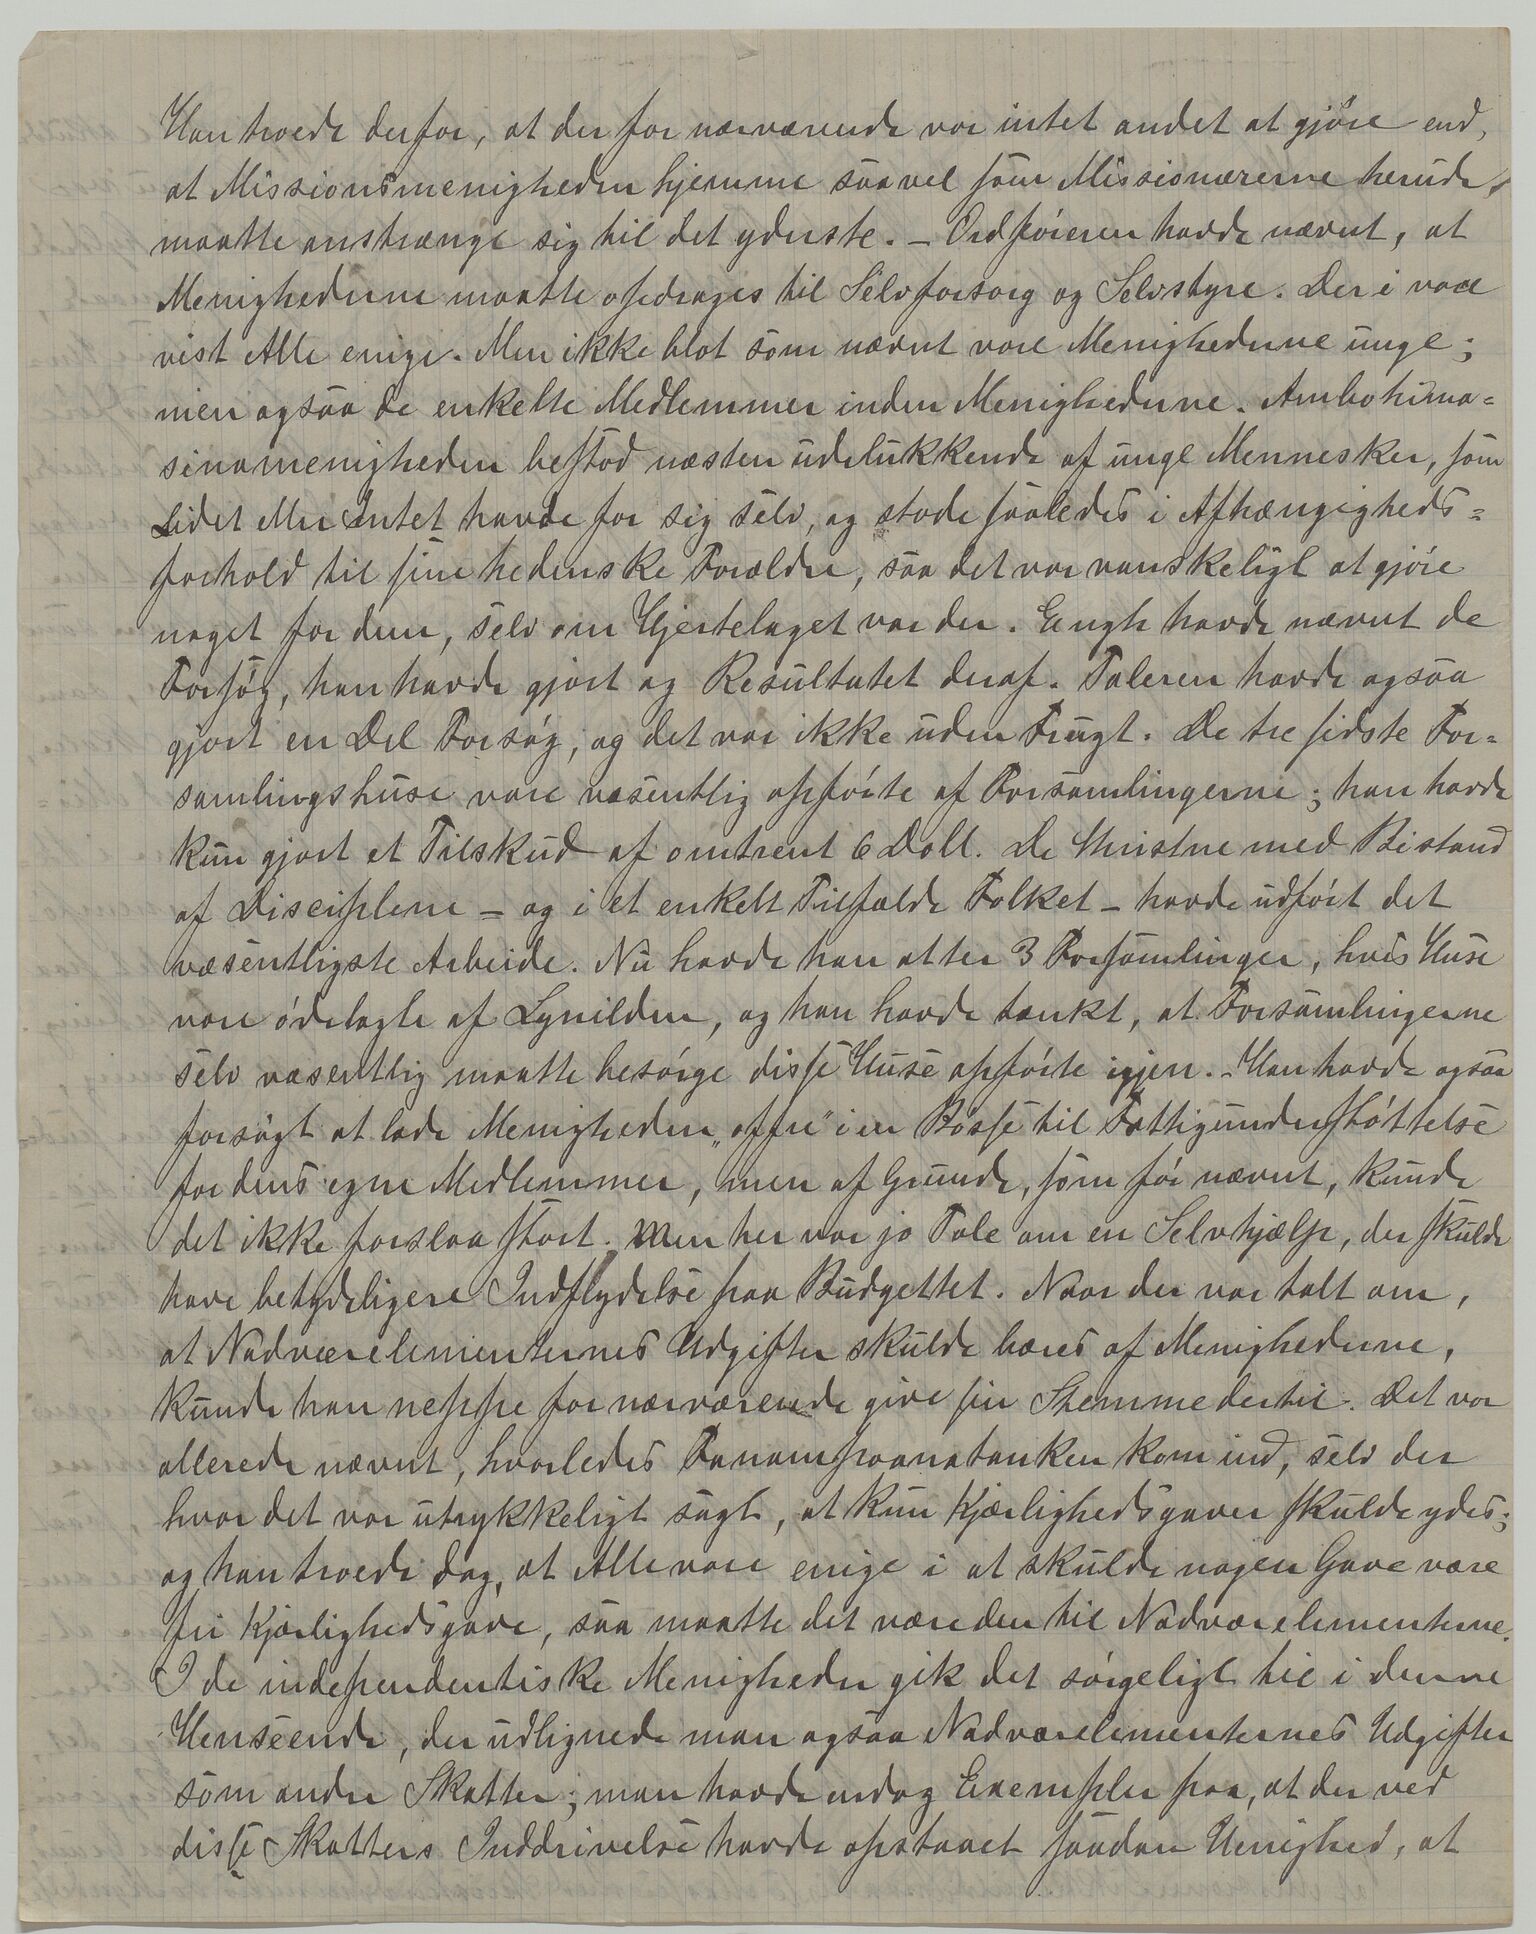 Han troede derfor, at der for nærværende var intet andet at gjøre end,
at Missionsmenigheden hjemme saavel som Missionærerne herude,
maatte anstrænge sig til det yderste. – Ordføreren havde nævnt, at
Menighederne maatte opdrages til Selvforsorg og Selvstyre. Der i vare
vist Alle enige. Men ikke blot som nævnt vare Menighederne unge;
men ogsaa de enkelte Medlemmer inden Menighederne. Ambohima=
sinamenigheden bestod næsten udelukkende af unge Mennesker, som
Lidet eller Intet havde for sig selv, og stode saaledes i Afhængigheds=
forhold til sine hedenske Forældre, saa det var vanskeligt at gjøre
noget for dem, selv om Hjertelaget var der. Engh havde nævnt de
Forsøg, han havde gjort og Resultatet deraf. Taleren havde ogsaa
gjort en Del Forsøg, og det var ikke uden Frugt. De tre sidste For=
samlingshuse vare væsentlig opførte af Forsamlingerne; han havde
kun gjort et Tilskud af omtrent 6 Doll. De Khristne med Bistand
af Disciplene – og i et enkelt Tilfælde Folket – havde udført det
væsentligste Arbeide. Nu havde han atter 3 Forsamlinger, hvis Huse
vare ødelagte af Lynilden, og han havde tænkt, at Forsamlingerne
selv væsentlig maatte besørge disse Huse opførte igjen. – Han havde ogsaa
forsøgt at lade Menigheden „offre" i en Bøsse til Fattigunderstøttelse
for dens egne Medlemmer, men af Grunde, som før nævnt, kunde
det ikke forslaa stort. Men her var jo Tale om en Selvhjælp, der skulde
have betydeligere Indflydelse paa Budgettet. Naar der var talt om,
at Nadverelementernes Udgifter skulde bæres af Menighederne,
kunde han neppe for nærværende give sin Stemme dertil. Det var
allerede nævnt, hvorledes Fanampoanatanken kom ind, selv der
hvor det var utrykkeligt sagt, at kun Kjærlighedsgaver skulde ydes;
og han troede dog, at Alle vare enige i at skulde nogen Gave være
fri Kjærlighedsgave, saa maatte det være den til Nadverelementerne.
I de independentiske Menigheder gik det sørgeligt til i denne
Henseende, der udlignede man ogsaa Nadverelementernes Udgifter
som andre Skatter; man havde endog Exempler paa, at der ved
disse Skatters Inddrivelse havde opstaaet saadan Uenighed, at